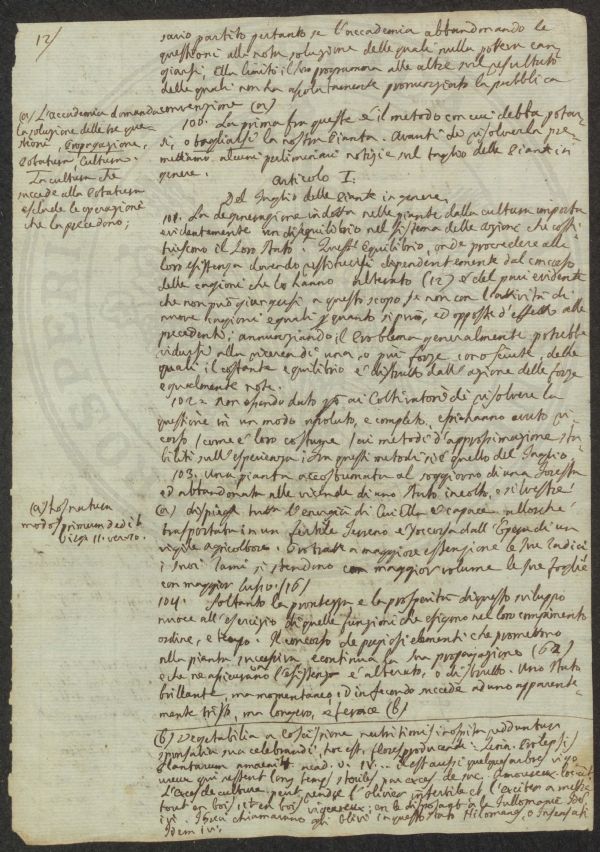 12/
savio partito pertanto se l'accademia abbandonando le
questioni alla nota soluzione delle quali nulla potteva can-
giarsi, Ella limitò il suo programma alle altre sul resultato
delle quali non ha assolutamente pronunziato la pubblica
convenzione (a)
(a) L'accademia domanda
la soluzione delle tre que-
stioni, Propagazione,
Potatura, Cultura.
La cultura che
succede alla Potatura
esclude le operazioni
che la precedono;
100. La prima fra queste è il metodo con cui debba potar-
si, o tagliarsi la nostra Pianta. Avanti di risolverla pre-
mettiamo alcuni preliminari notizie sul taglio delle Piante in
genere.
Articolo I.
Del Taglio delle Piante in genere.
101. La degenerazione indotta nelle piante dalla cultura importa
evidentemente un disequilibrio nel sistema delle azioni che costi-
tuiscono il Loro Stato. Questo Equilibrio, onde provvedere alla
loro esistenza dovendo restituirsi dipendentemente dal
delle cagioni che lo hanno alterato (12) è del pari evidente
che non può giungersi a questo scopo, se non con l'attività di
nuove cagioni eguali quanto si può, ed opposte d'effetto alle
precedenti; annunziando il Problema generalmente potrebbe
ridursi alla ricerca di una, o più forze conosciute, delle
quali il costante equilibrio è distrutto dall'azione delle forze
egualmente note.
102. non essendo dato poi ai Coltivatori di risolvere la
questione in un modo risoluto, e completo, essi hanno avuto ri-
corso (come è loro costume) ai metodi d'approssimazione sta-
biliti sull'esperienza: fra questi metodi vi è quello del Taglio.
103. Una pianta accostumata al soggiorno di una Foresta
ed abbandonata alle vicende di uno Stato incolto, e silvestre
(a) dispiega tutta l'energia di cui Ella è capace allorchè
(a) Hos natura
modos primum dedit
Virg. II. verso.
trasportata in un fertile Terreno è soccorsa dall'Opera di un
vigile agricoltore. Protratte a maggiore estensione le sue radici
i suoi rami si stendono con maggior volume le sue foglie
con maggior lusso. (16)
104. Soltanto la prontezza e la prosperità di questo sviluppo
nuoce all'esercizio di quelle funzioni che esigono nel loro compimento
ordine, e tempo. Il concorso de preziosi elementi che promettono
alla pianta successiva, continua la sua propagazione (62)
e che ne assicurano l'esistenza è alterato, o distrutto. Uno Stato
brillante, ma momentaneo, ed infecondo succede ad uno apparente-
mente tristo, ma longevo, e ferace (b)
(b) Vegetabilia a
sponsalia sua celebrandi, hoc est, flores producendi. Linn. Prolepsi
plantarum amoenit. acad. v. IV... Il est aussi quelques arbres vigo-
reux qui restent long temps steriles par exces de suc. Amoureux loc. cit.
L'exces de culture peut rendre l'olivier infertile et l'exciter a mettre
tout en bois, et en bois vigoureux; en le disposant à la Fullomanie Idem
ivi. I Greci chiamavano gli Olivi in questo stato Hilomanes, o Insensati
Idem ivi.